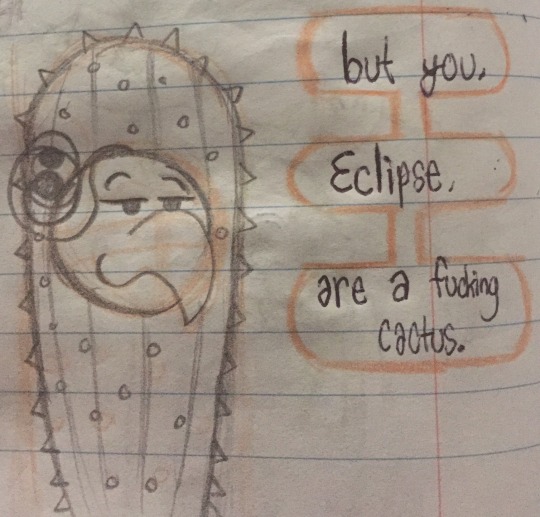 but you,
Eclipse,
are a fucking
cactus.